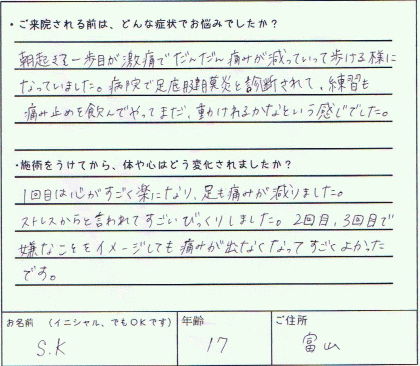 ・ご来院される前は、どんな症状でお悩みでしたか？
朝起きて一歩目が激痛でだんだん痛みが減っていって歩ける様に
なっていました。病院で足底腱膜炎と診断されて、練習も
痛み止めを飲んでやってまだ、動かれるかなという感じでした。
・施術をうけてから、体や心はどう変化されましたか？
1回目は心がすごく楽になり、足も痛みが減りました。
ストレスからと言われてすごいびっくりしました。2回目、3回目で
嫌なことをイメージしても痛みが出なくなってすごくよかった
です。
お名前 （イニシャル、でもOKです） 年齢 ご住所
S.K 17 富山